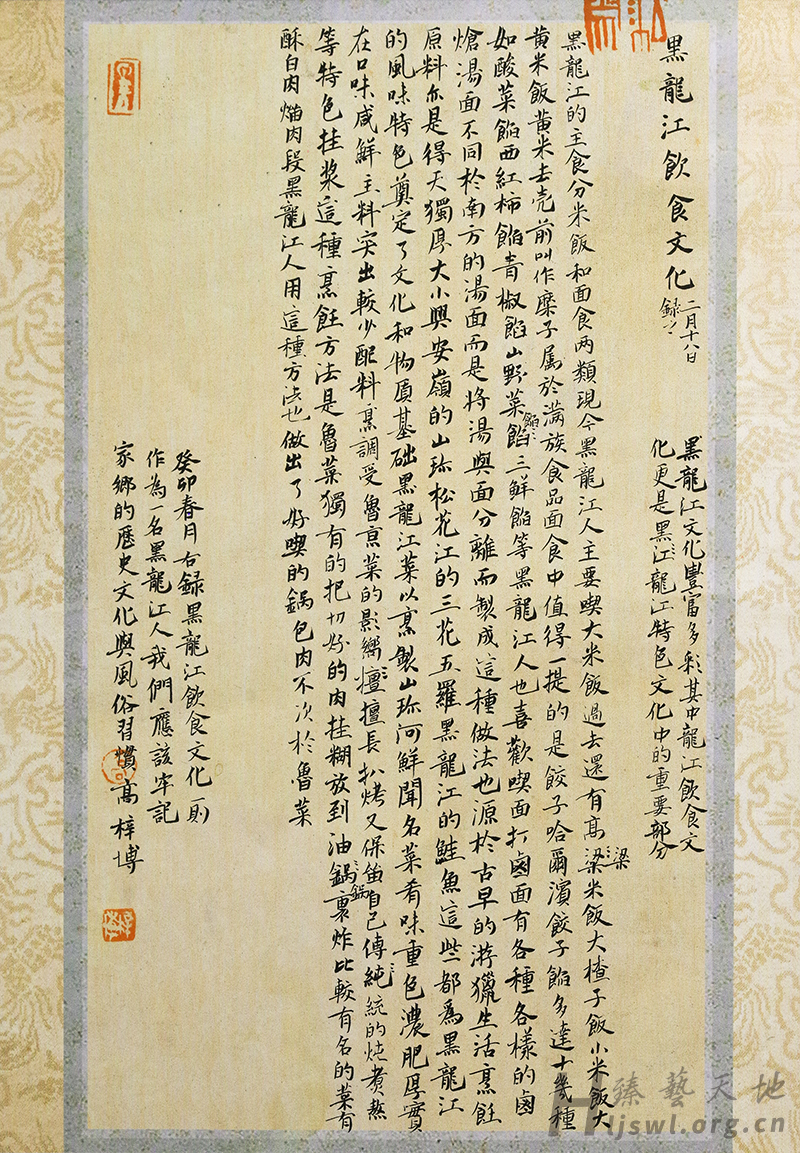 黑龍江飲食文化
二月十八日
錄之
黑龍江文化豐富多彩其中龍江飲食文
化更是黑江龍江特色文化中的重要部分
黑龍江的主食分米飯和面食两類現今黑龍江人主要喫大米飯過去還有高梁米飯大楂子飯小米飯大
梁
黄米飯黄米去壳前叫作糜子属於滿族食品面食中值得一提的是餃子哈爾濱餃子餡多達十幾種
如酸菜餡西紅柿餡青椒餡山野菜餡三鮮餡等黑龍江人也喜歡喫面打鹵面有各種各樣的鹵
餡
熗湯面不同於南方的湯面而是將湯與面分離而製成這種做法也源於古早的游獵生活烹飪
原料亦是得天獨厚大小興安嶺的山珎松花江的三花五羅黑龍江的鮭魚這些都爲黑龍江
的風味特色奠定了文化和物質基础黑龍江菜以烹製山珎河鮮聞名菜肴味重色濃肥厚實
在口味咸鮮主料突出較少配料烹調受魯烹菜的影響擅擅長扒烤又保留自己傳純統的炖煮熬
等特色挂漿這種烹飪方法是魯菜獨有的把切好的肉挂糊放到油鍋裏炸比較有名的菜有
鍋
酥白肉熘肉段黑龍江人用這種方法也做出了好喫的鍋包肉不次於魯菜
癸卯春月右録黑龍江飲食文化一則
作為一名黑龍江人我們應該牢記
家鄉的歷史文化與風俗習慣高梓博
臻藝天地
Hljswl.org.cn